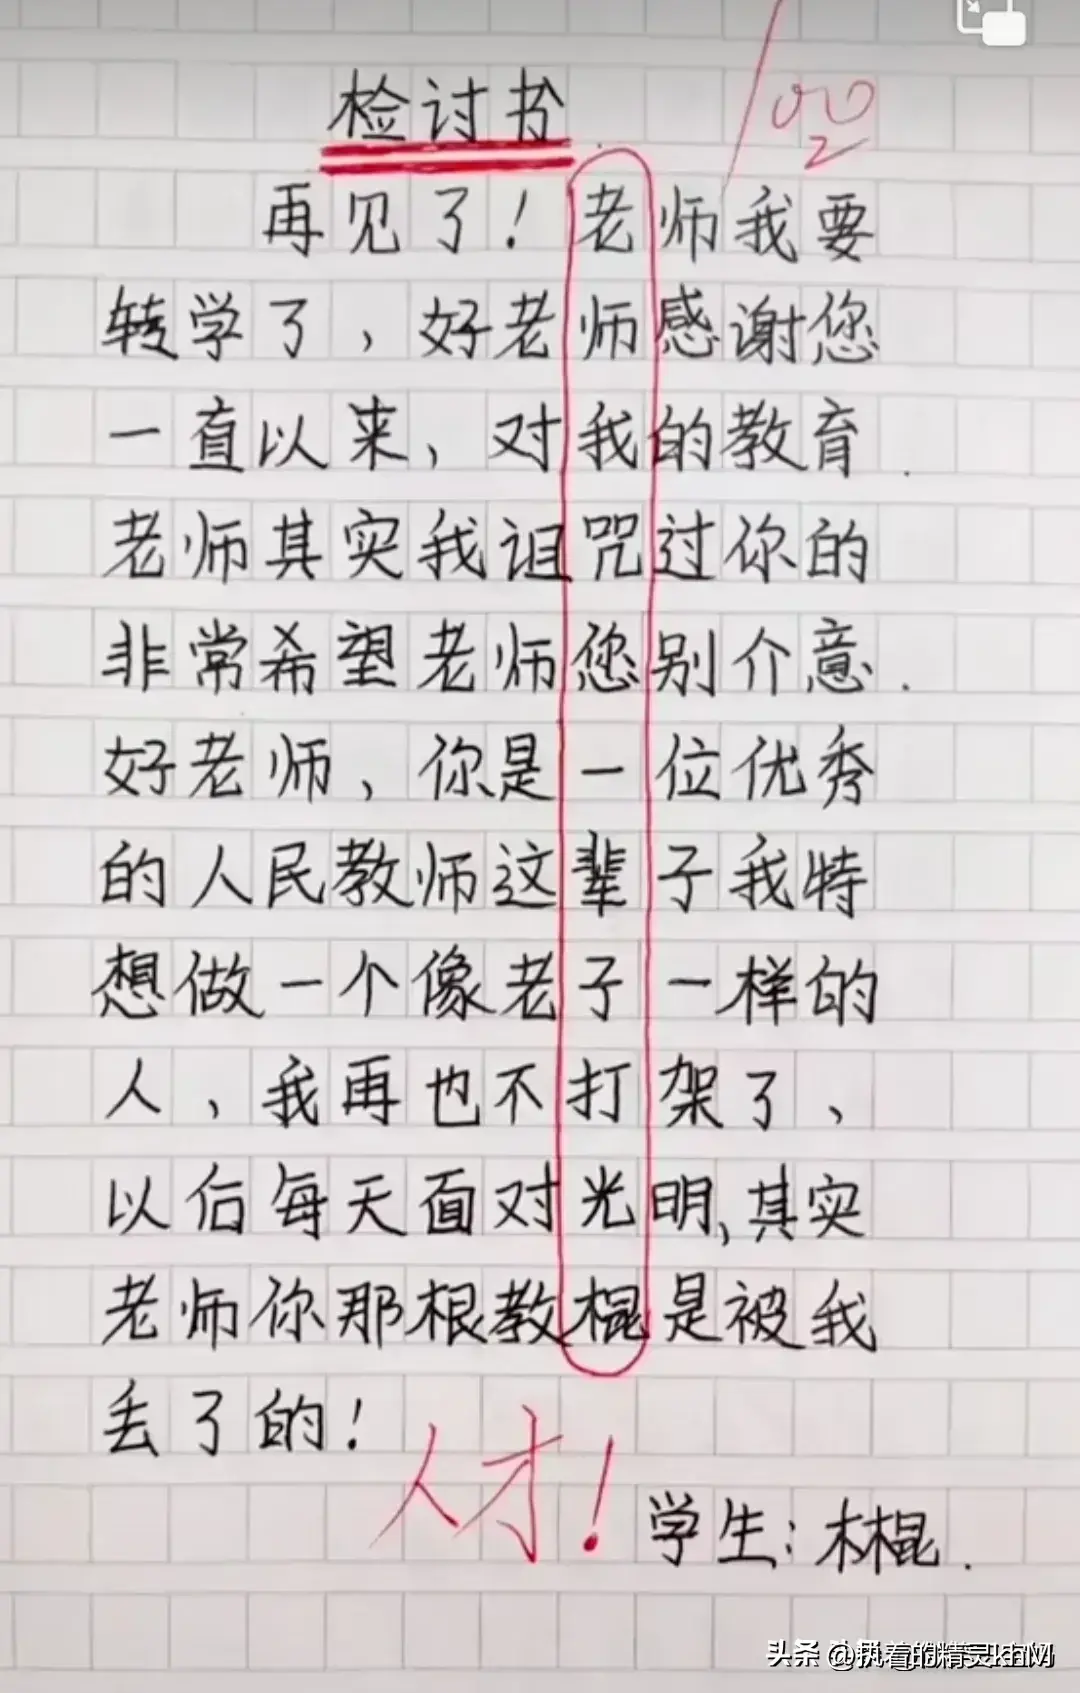 检讨书
100
再见了！老师我要
转学了，好老师感谢您
一直以来，对我的教育.
老师其实我诅咒过你的
非常希望老师您别介意.
好老师，你是一位优秀
的人民教师这辈子我特
想做一个像老子一样的
人，我再也不打架了，
以后每天面对光明,其实
老师你那根教棍是被我
丢了的！
人才！
学生：木棍.
头条